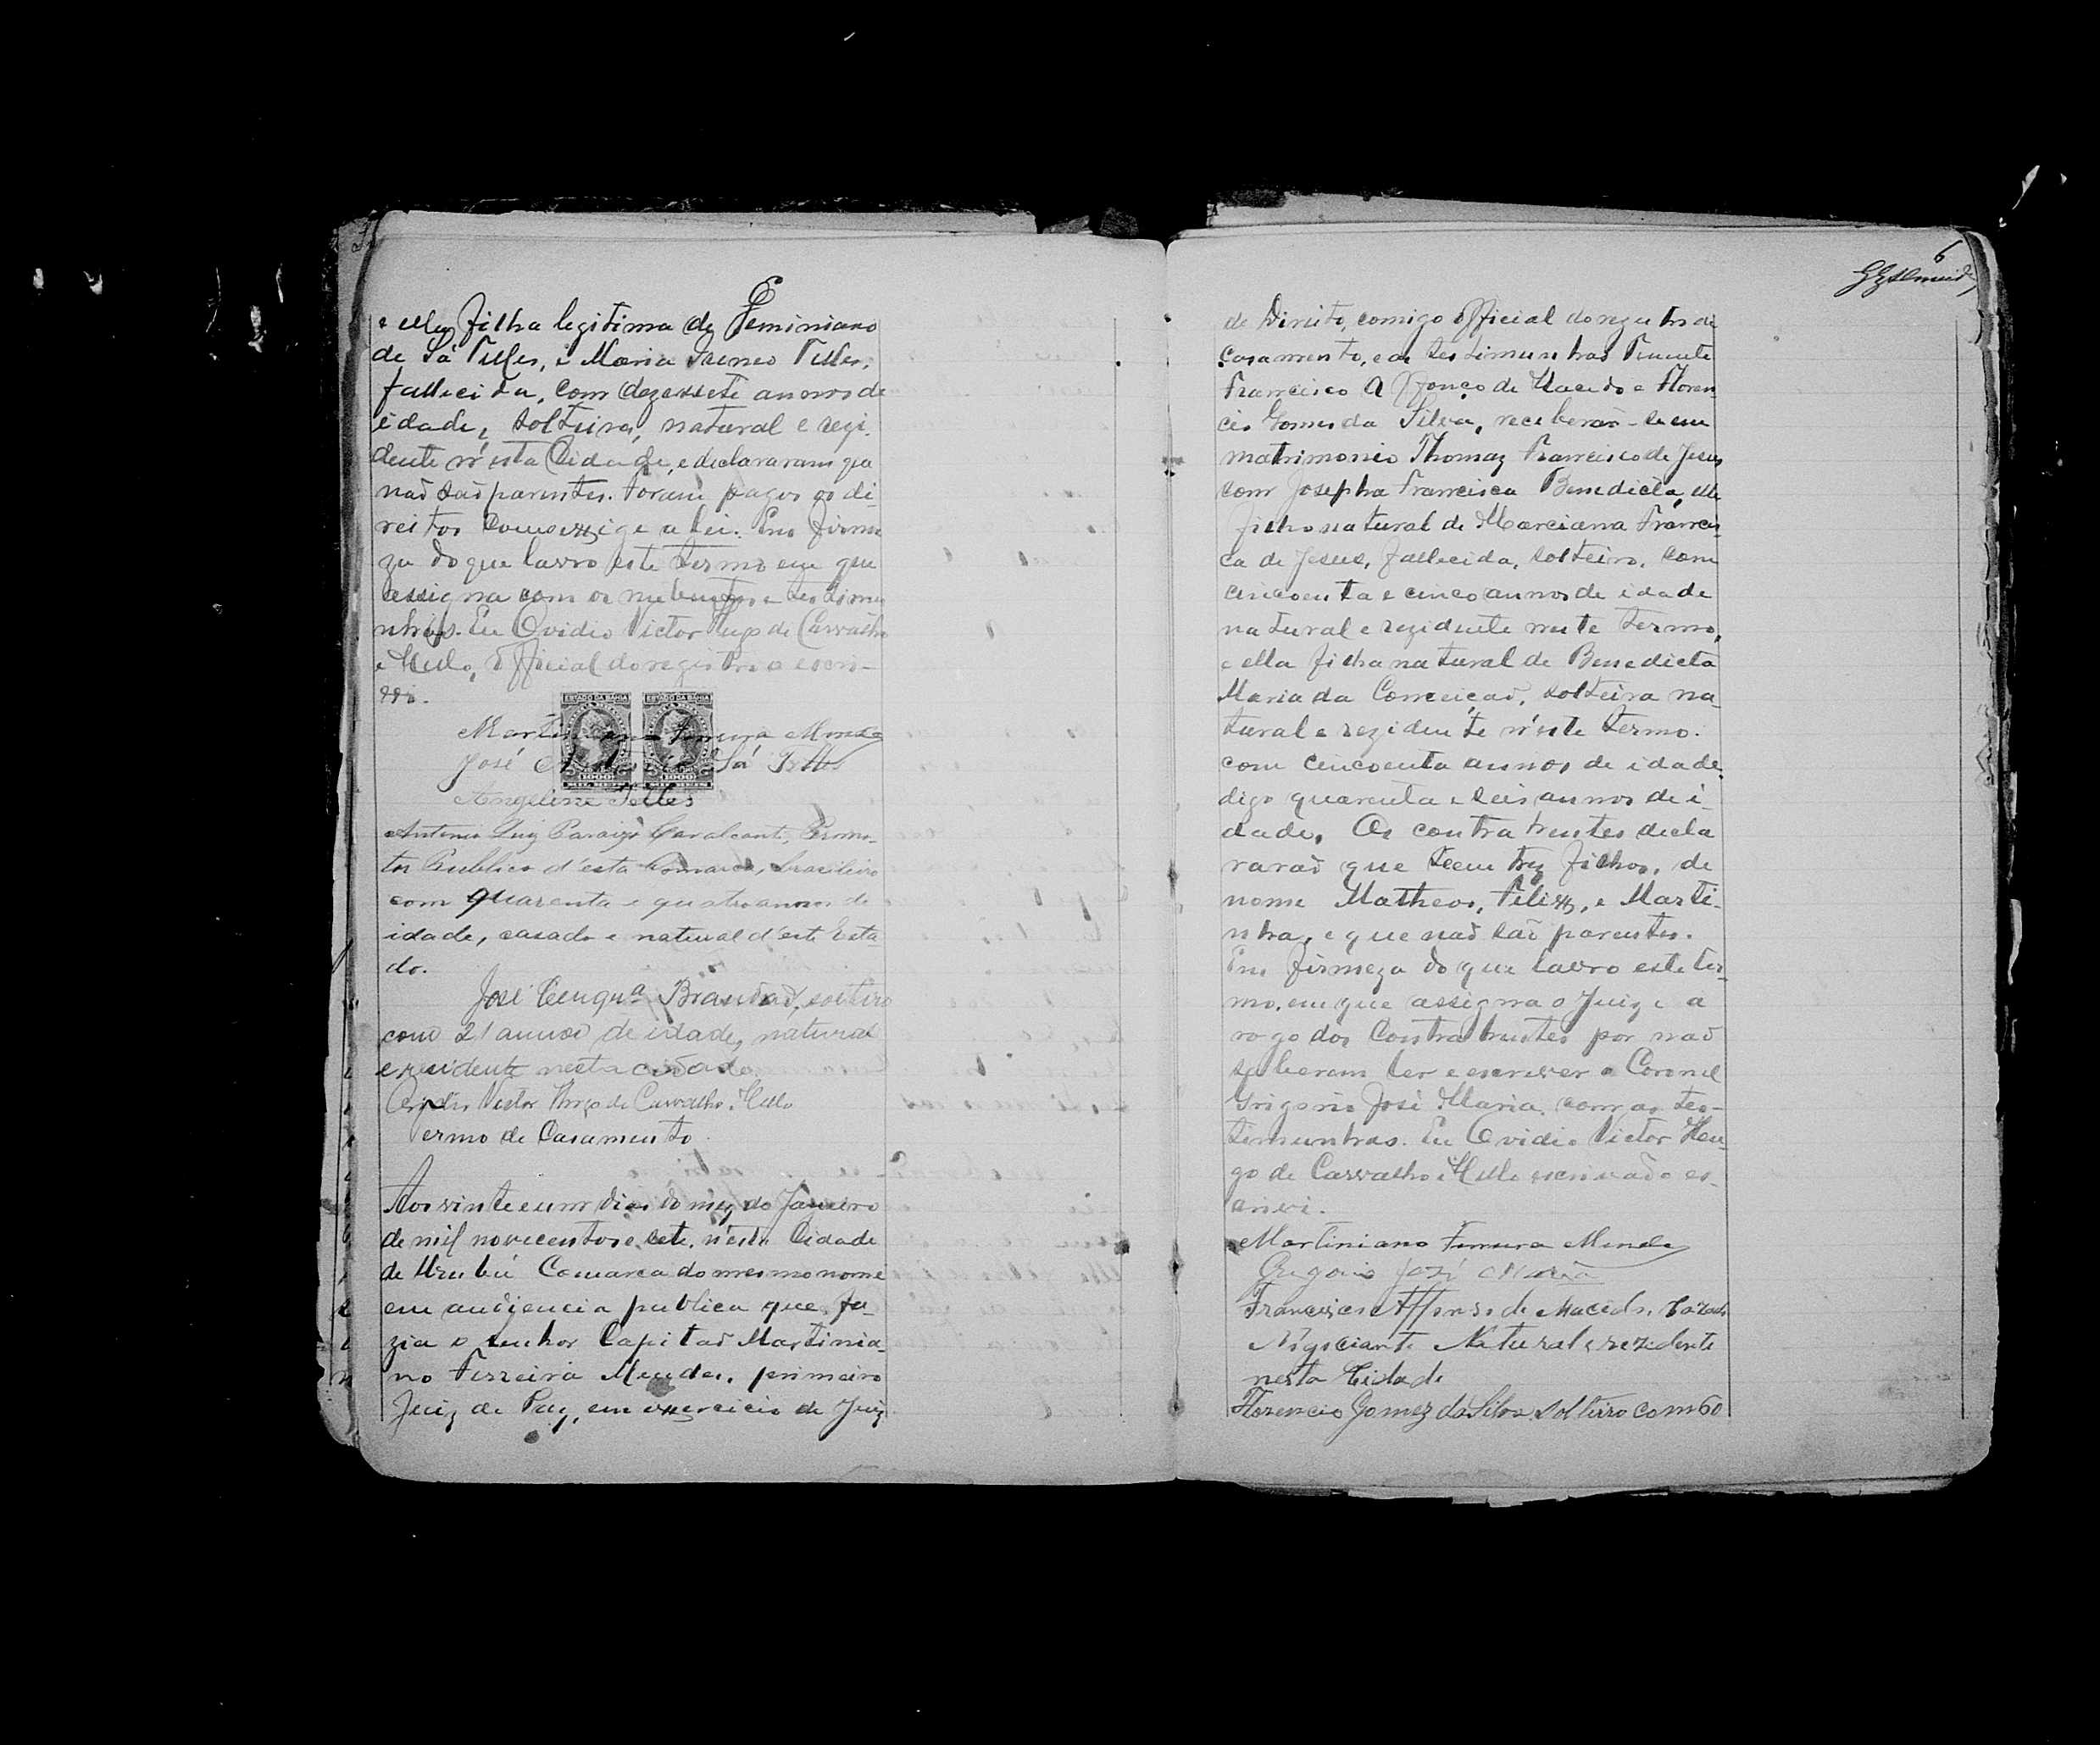 e ella filha legitima de Geminiano
de Sá Telles, e Maria Telles,
fallecida, com dezessete annos de
idade, solteira, natural e rezi-
dente n'esta Cidade, e declararam que
naõ saõ parentes. Foram pagos os di-
reitos como exzige a lei. Em firme
za do que lavro este termo em que
assigna com os e testemu
nhas. Eu Ovidio Victor Hugo de Carvalho
e Mello, Official do registro o escri-
vi.
ESTADO DA BAHIA ESTADO DA BAHIA
1000 1000
MIL REIS MIL REIS
Martiniano Ferreira Mendes
José Sá Telles
Angelina Telles
Antonio Luiz Paraizo Cavalcanti, Promo-
tor Publico d'esta Comarca, brasileiro
com quarenta e quatro annos de
idade, casado e natural d'este Esta-
do.
José Cerqra Brandaõ, solteiro
com 21 annos de idade, natural
e residente nesta cidade
Ovidio Victor Hugo de Carvalho e Mello
Termo de Casamento
Aos vinte e um dias do mez de Janeiro
de mil novecentos e sete, n'esta Cidade
de Urubú Comarca do mesmo nome
em audiencia publica que fa-
zia o senhor Capitaõ Martinia-
no Ferreira Mendes, primeiro
Juiz de Paz, em exzercicio de Juiz
6
de Direito, comigo Official do registro de
casamento, e as testimunhas Tenente
Francisco Affonço de Macedo e Floren
cio Gomes da Silva, receberaõ-se em
matrimonio Thomaz Francisco de Jesus
com Josepha Francisca Benedicta, elle
filho natural de Marciana Francis
ca de Jesus, fallecida, solteiro, com
cincoenta e cinco annos de idade
natural e rezidente neste termo,
e ella filha natural de Benedicta
Maria da Conceiçaõ, solteira na
tural e rezidente n'este termo.
com cincoenta annos de idade,
digo quarenta e seis annos de i-
dade, Os contrahentes decla
raraõ que teem trez filhos, de
nome Matheos, Felix, e Marti-
nha, e que naõ saõ parentes.
Em firmeza do que lavro este ter-
mo, em que assigna o Juiz e a
rogo dos Contrahentes por naõ
saberem ler e escrever o Coronel
Grigorio José Maria, com as tes-
timunhas. Eu Ovidio Victor Hu-
go de Carvalho e Mello escrivaõ o es-
crevi.
Martiniano Ferreira Mendes
Gregorio José Maria
Francisco Affonso de Macedo, Cazado
Nigociante Natural e rezidente
nesta Cidade
Florencio Gomez da Silva solteiro com 60